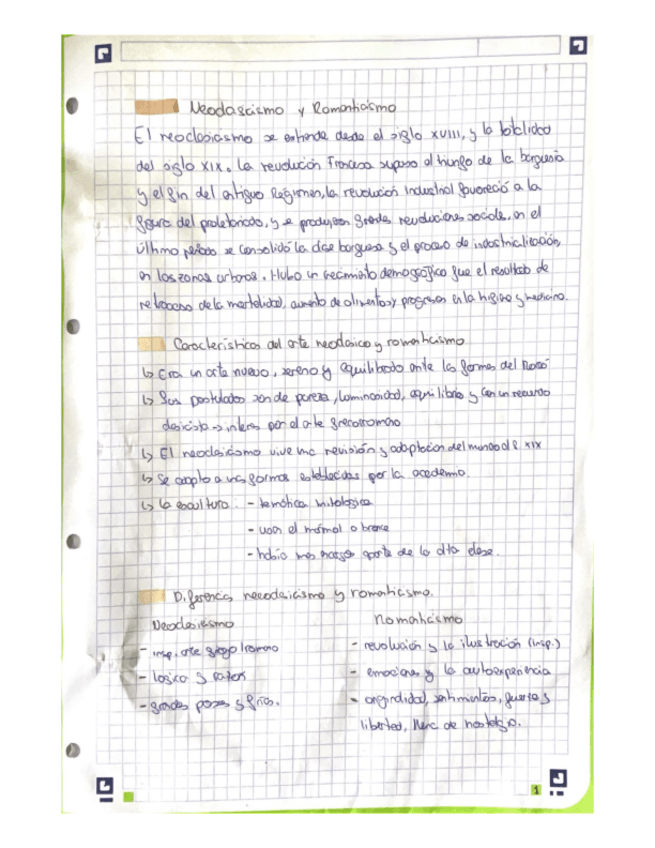 Neoclasicismo y Romanticismo
El neoclasicismo se extiende desde el siglo XVIII, y la totalidad
del siglo XIX. La revolución Francesa supuso el triunfo de la burguesía
y el fin del antiguo Régimen, la revolución industrial favoreció a la
figura del proletariado, y se produjeron grandes revoluciones sociales, en el
último período se consolidó la clase burguesa y el proceso de industrialización,
en las zonas urbanas. Hubo un crecimiento demográfico fue el resultado de
retroceso de la mortalidad, aumento de alimentos y progresos en la higiene y medicina.
Características del arte neoclásico y romanticismo
↳ Era un arte nuevo, sereno y equilibrado ante las formas del Rococó
↳ Sus postulados son de pureza, luminosidad, equilibrio y con un recuerdo
clasicista → interés por el arte grecorromano
↳ El neoclasicismo vive una revisión y adaptación del mundo del S. XIX
↳ Se adapta a unas formas establecidas por la academia.
↳ La escultura: - temática mitológica
- usan el mármol o bronce
- había mas encargos aparte de la alta clase.
Diferencias neoclasicismo y romanticismo.
Neoclasicismo
Romanticismo
- insp. arte griego/romano
- revolución y la ilustración (insp.)
- lógica y razón
- emociones y la autoexperiencia
- grandes poses y frías.
- originalidad, sentimientos, guerras y
libertad, lleno de nostalgia.
1